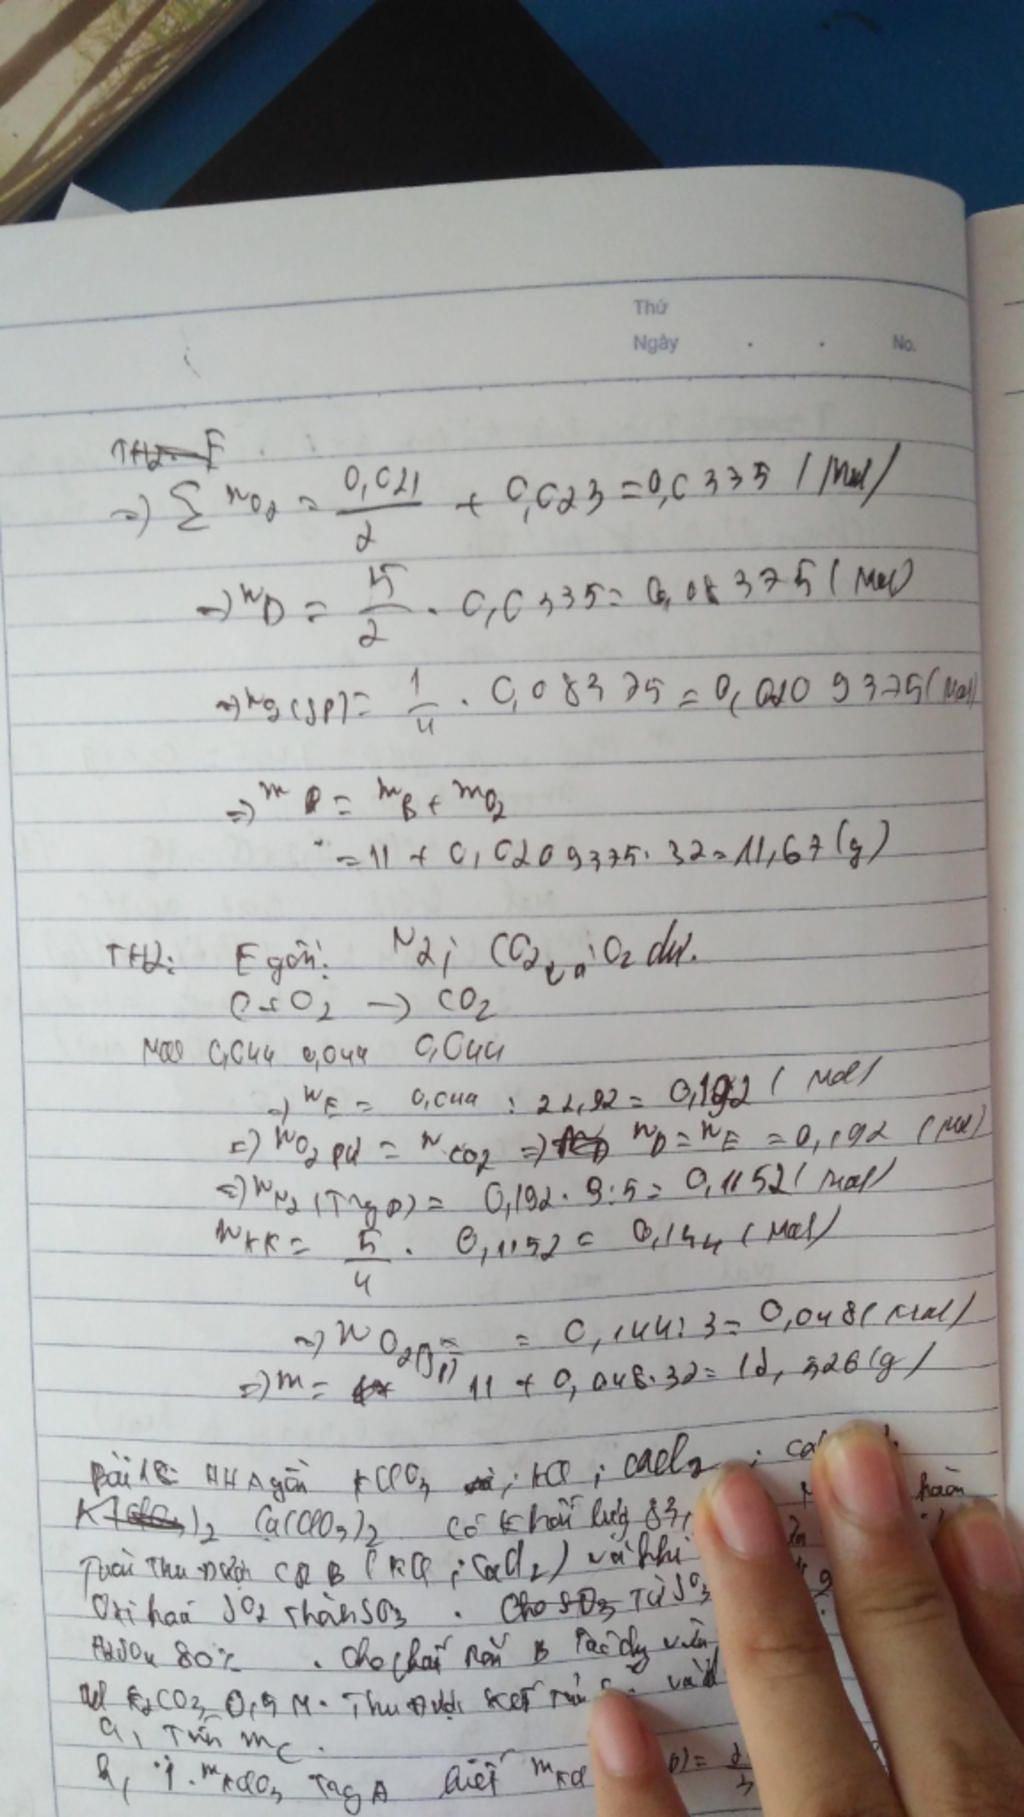 Thứ
Ngày . . No.
=) Σ nO2 = 0,021/2 + 0,023 = 0,0335 (mol)
=) nD = 5/2 . 0,0335 = 0,08375 (mol)
=) = 1/4 . 0,08375 = 0,0209375 (mol)
=) m = mB + mO2
= 11 + 0,0209375 . 32 = 11,67 (g)
TH2: E gồm: N2; CO2 ; O2 dư.
C + O2 → CO2
Mol 0,044 0,044 0,044
=) nE = 0,044 : 22,92 = 0,192 (mol)
=) nO2 pứ = nCO2 =) nD = nE = 0,192 (mol)
=) nN2 (Trg D) = 0,192 . 3 : 5 = 0,1152 (mol)
nKK = 5/4 . 0,1152 = 0,144 (mol)
=) nO2 = 0,144 : 3 = 0,048 (mol)
=) m = 11 + 0,048 . 32 = 12,526 (g)
Bài HH A gồm KClO3 ; KCl ; CaCl2 ;
Ca(ClO3)2 Có khối lượng 83, hoàn
Toàn Thu được CR B (KCl ; CaCl2) và khí
Oxi hoá SO2 Thành SO3 . Cho SO3 Từ SO3
H2SO4 80% . Cho chất rắn B Tác dụng
K2CO3 0,5 M. Thu được kết tủa
a, Tính mC .
b, % mKClO3 Trong A biết mKCl